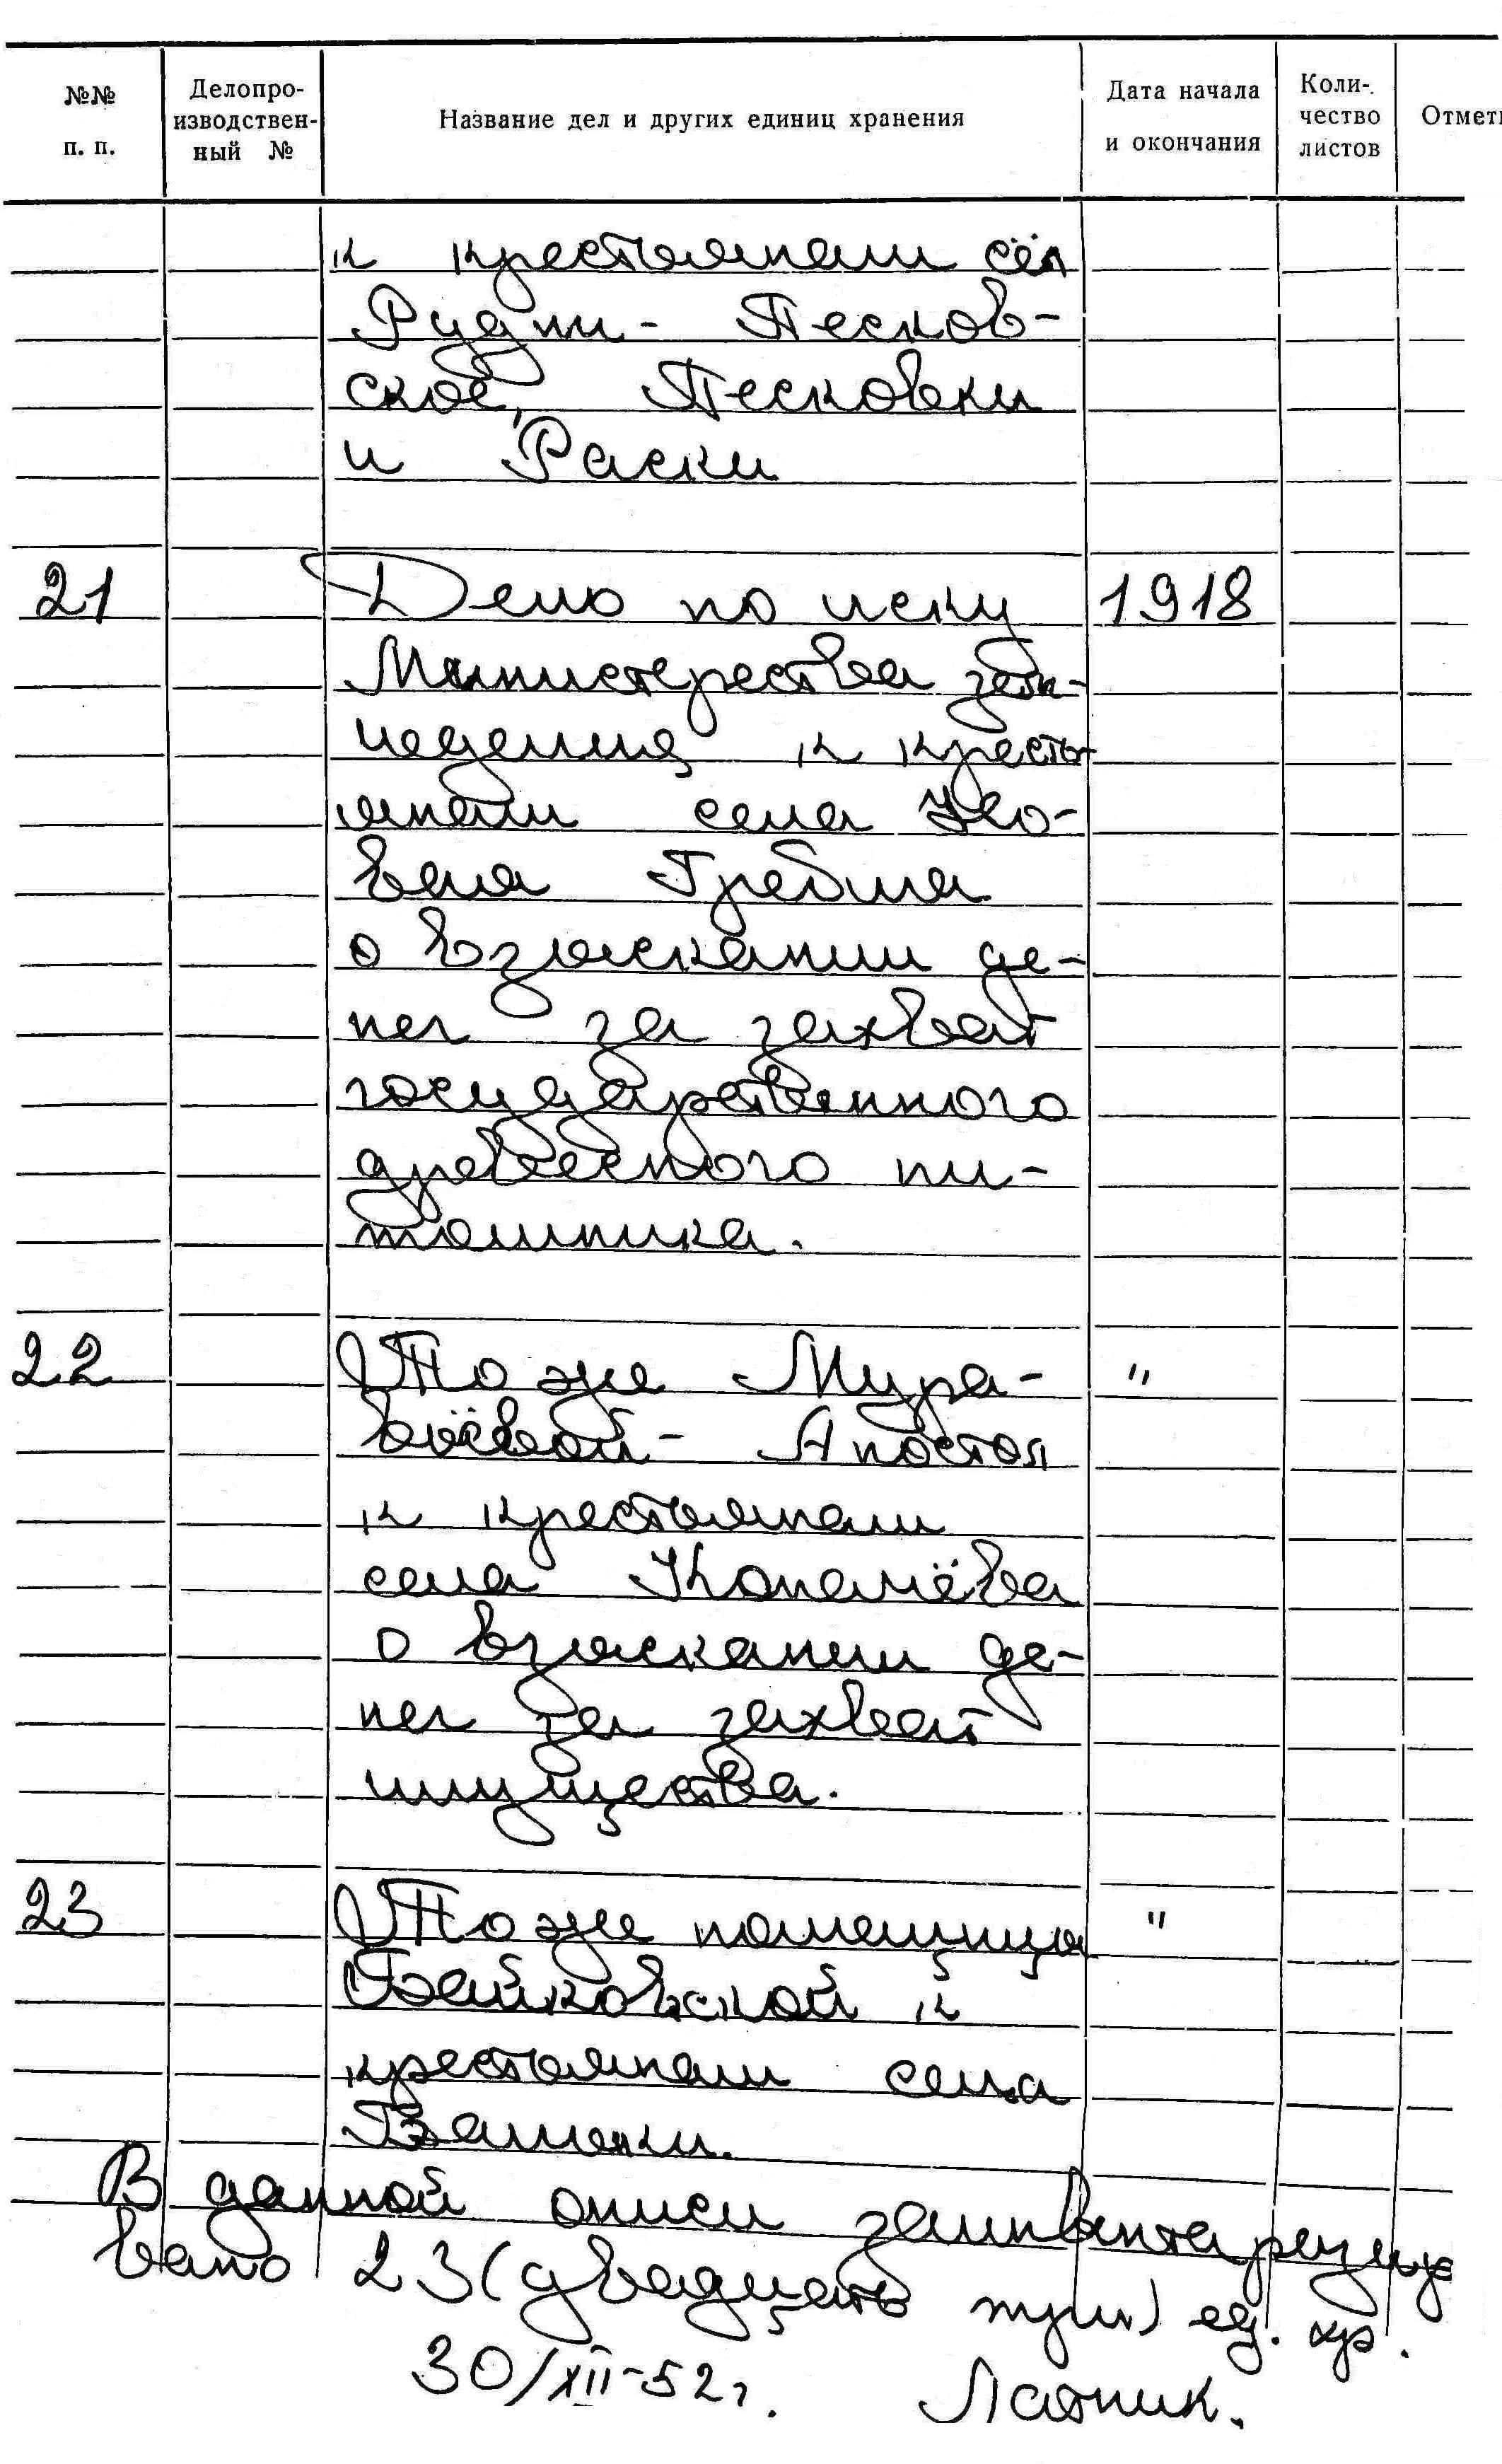 №№ п. п.
Делопро-
изводствен-
ный №
Название дел и других единиц хранения
Дата начала
и окончания
Коли-
чество
листов
Отмет
к крестьянам сёл
Рудни - Песков-
ское, Песковки
и Раски
21 Дело по иску 1918
Министерства земл-
еделия к кресть-
янам села
Гребля
о взыскании де-
нег за захват
государственного
древесного пи-
томника.
22 То же Мура- "
вьёвой - Апостол
к крестьянам
села Копачёва
о взыскании де-
нег за захват
имущества.
23 То же помещицы "
Байковской к
крестьянам села
В данной описи заинвентаризиро
вано 23 (двадцать три) ед. хр.
30/XII-52г. Латник.